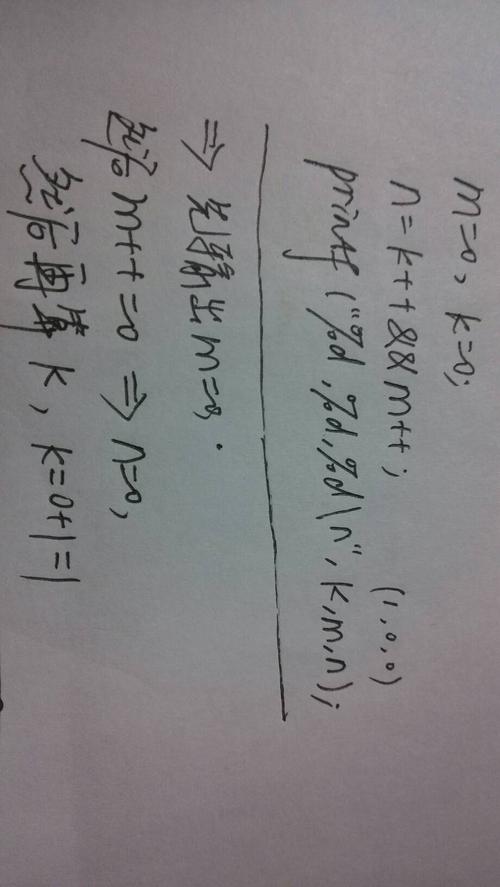 m=0, k=0;
n=k++&&m++;
(1,0,0)
printf("%d,%d,%d\n",k,m,n);
⇒ 先输出m=0,.
然后 m++=0 ⇒ n=0,
然后再算 k, k=0+1=1